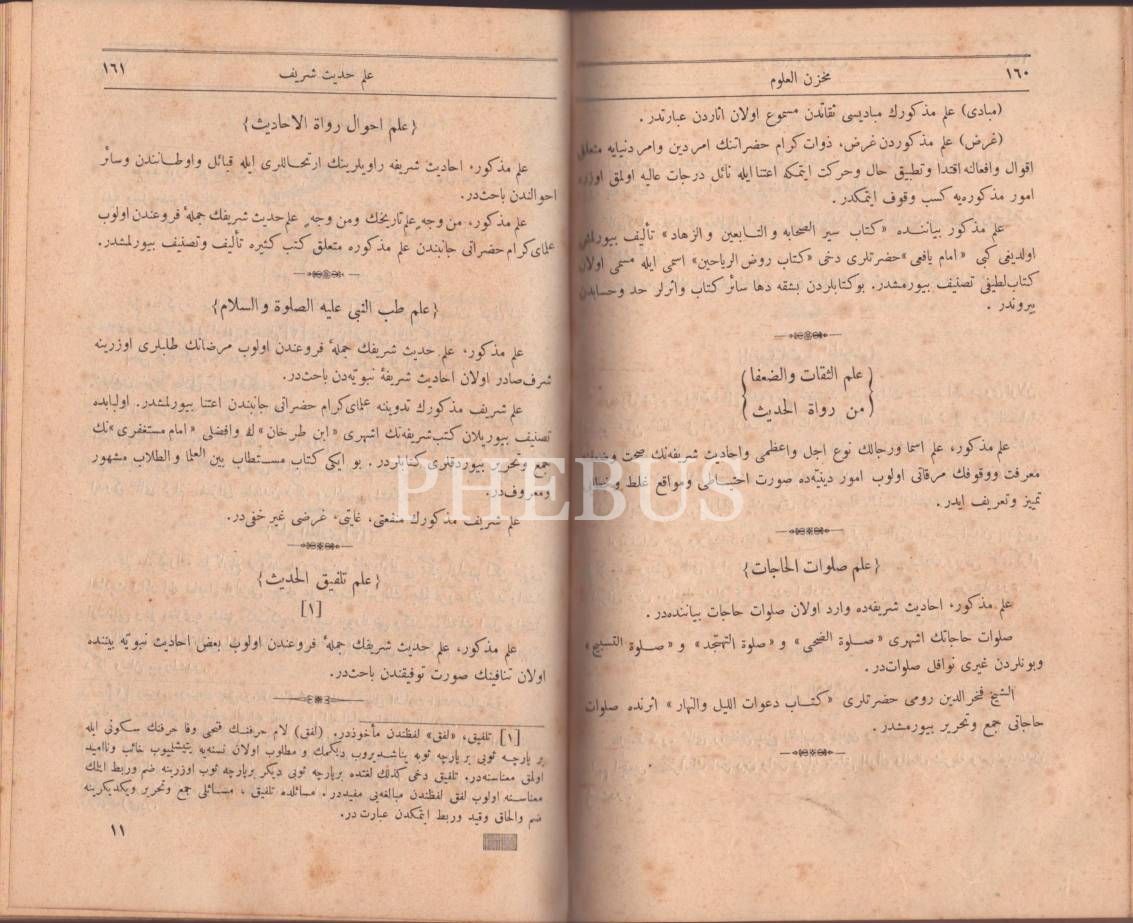 ١٦٠
مخزن العلوم
(مبادى) علم مذكورك مباديسى ثقاتدن مسموع اولان آثاردن عبارتدر .
(غرض) علم مذكوردن غرض، ذوات كرام حضراتنك امر دين وامر دنيايه متعلق
اقوال وافعالنه اقتدا وتطبيق حال وحركت ايتمكه اعتنا ايله نائل درجات عاليه اولمق اوزره
امور مذكوره‌يه كسب وقوف ايتمكدر .
علم مذكور بياننده «كتاب سير الصحابه و التابعين و الزهاد» تأليف بيورلمش
اولديغى كبى «امام يافعى» حضرتلرى دخى «كتاب روض الرياحين» اسمى ايله مسمى اولان
كتاب لطيفى تصنيف بيورمشدر. بو كتابلردن بشقه دها سائر كتاب واثرلر حد وحسابدن
بيروندر .
{علم الثقات والضعفا
من رواة الحديث}
علم مذكور، علم اسما ورجالك نوع اجل واعظمى واحاديث شريفه‌نك صحت
معرفت ووقوفك مرقاتى اولوب امور دينيه‌ده صورت احتياطى ومواقع غلط و
تمييز وتعريف ايدر .
{علم صلوات الحاجات}
علم مذكور، احاديث شريفه‌ده وارد اولان صلوات حاجات بياننده‌در .
صلوات حاجاتك اشهرى «صلوة الضحى» و «صلوة التهجد» و «صلوة التسبيح»
وبونلردن غيرى نوافل صلوات‌در .
الشيخ فخر الدين رومى حضرتلرى «كتاب دعوات الليل والنهار» اثرنده صلوات
حاجاتى جمع وتحرير بيورمشدر .
علم حديث شريف
١٦١
{علم احوال رواة الاحاديث}
علم مذكور، احاديث شريفه راويلرينك ارتحاللرى ايله قبائل واوطانبندن وسائر
احوالندن باحث‌در.
علم مذكور، من وجه علم تاريخك ومن وجه علم حديث شريفك جملهٔ فروعندن اولوب
علماى كرام حضراتى جانبندن علم مذكوره متعلق كتب كثيره تأليف وتصنيف بيورلمشدر.
{علم طب النبى عليه الصلوة والسلام}
علم مذكور، علم حديث شريفك جملهٔ فروعندن اولوب مرضانك طلبلرى اوزرينه
شرف‌صادر اولان احاديث شريفهٔ نبويه‌دن باحث‌در.
علم شريف مذكورك تدويننه علماى كرام حضراتى جانبندن اعتنا بيورلمشدر. اولبابده
تصنيف بيوريلان كتب شريفه‌نك اشهرى «ابن طرخان» ك وافضلى «امام مستغفرى»نك
جمع وتحرير بيوردقلرى كتابلردر. بو ايكى كتاب مستطاب بين العلما و الطلاب مشهور
ومعروف‌در.
علم شريف مذكورك منفعتى، غايتى، غرضى غير خفى‌در.
{علم تلفيق الحديث}
[١]
علم مذكور، علم حديث شريفك جملهٔ فروعندن اولوب بعض احاديث نبويه بيننده
اولان تنافينك صورت توفيقندن باحث‌در.
[١] تلفيق، «لفق» لفظندن مأخوذدر. (لفق) لام حرفنك فتحى وفا حرفنك سكونى ايله
بر پارچه ثوبى بر پارچه ثوبه يناشديروب ديكمك و مطلوب اولان نسنه‌يه يتيشليوب خائب وناميد
اولمق معناسنه‌در. تلفيق دخى كذلك لغتده بر پارچه ثوبى ديكر بر پارچه ثوب اوزرينه ضم وربط ايلمك
معناسنه اولوب لفق لفظندن مبالغه‌يى مفيددر. مسائلده تلفيق ، مسائلى جمع وتحرير ويكديكرينه
ضم والحاق وقيد وربط ايتمكدن عبارت‌در.
١١
PHEBUS